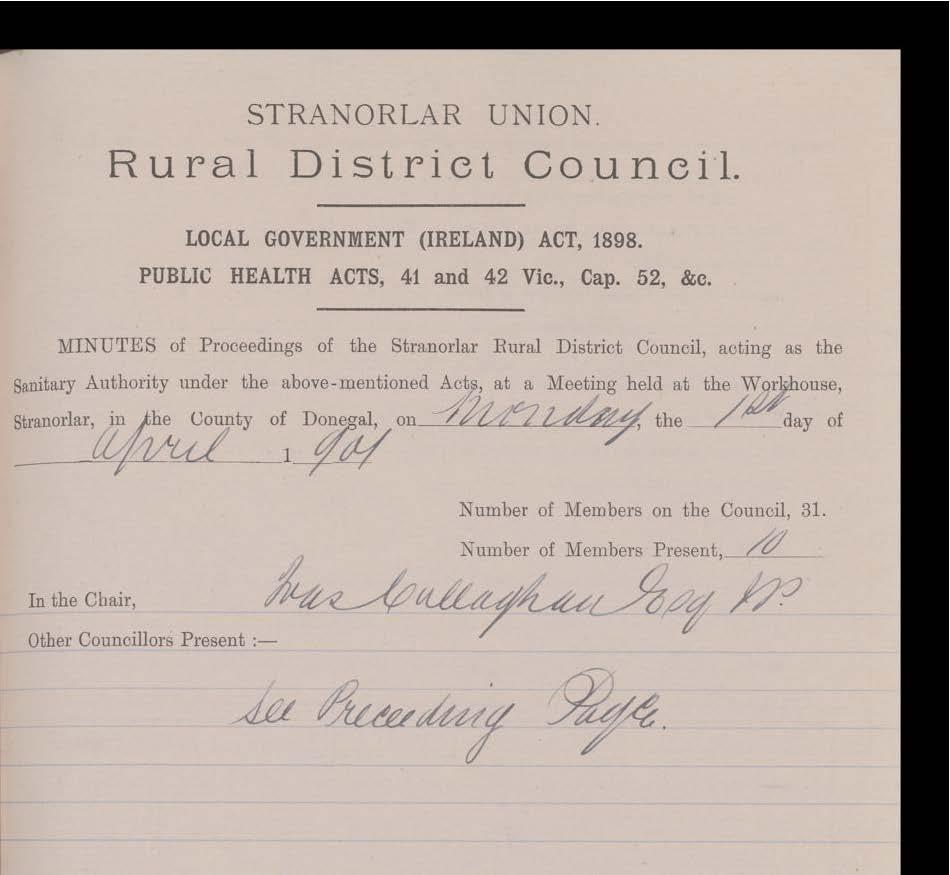 STRANORLAR UNION.
Rural District Council.
LOCAL GOVERNMENT (IRELAND) ACT, 1898.
PUBLIC HEALTH ACTS, 41 and 42 Vic., Cap. 52, &c.
MINUTES of Proceedings of the Stranorlar Rural District Council, acting as the
Sanitary Authority under the above-mentioned Acts, at a Meeting held at the Workhouse,
Stranorlar, in the County of Donegal, on Monday, the 1st day of
April 1901
Number of Members on the Council, 31.
Number of Members Present, 10
In the Chair, Callaghan Esq JP.
Other Councillors Present :—
See Preceeding Page.